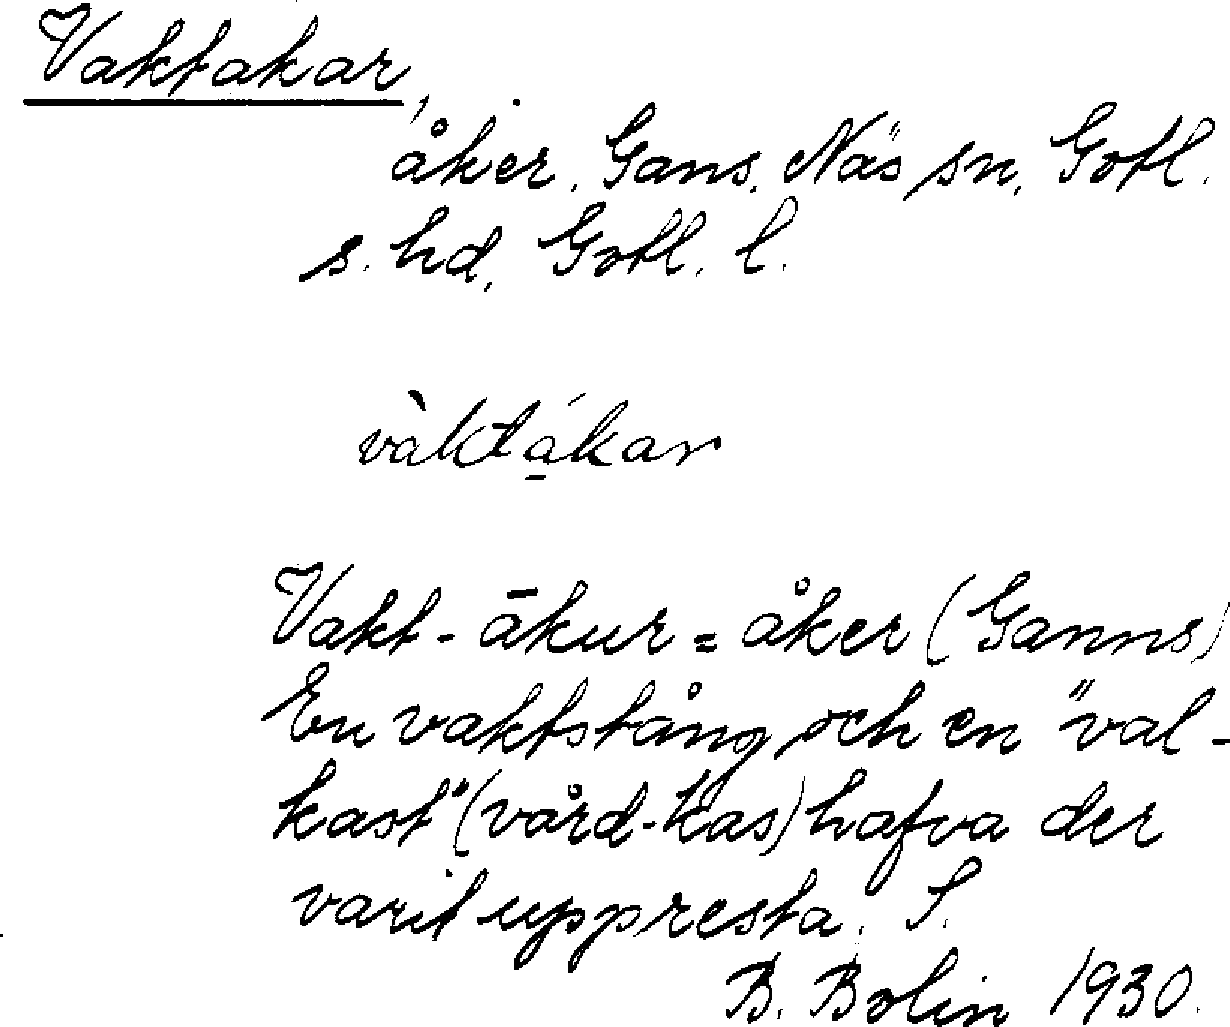 Vaktakar,
åker, Gans, Näs sn, Gotl.
s. hd, Gotl. l.
vàktá̱kar
Vakt-ākur = åker (Ganns)
En vaktstång och en "val-
kast" (vård-kas) hafva der
varit uppresta. S.
B. Bolin 1930.